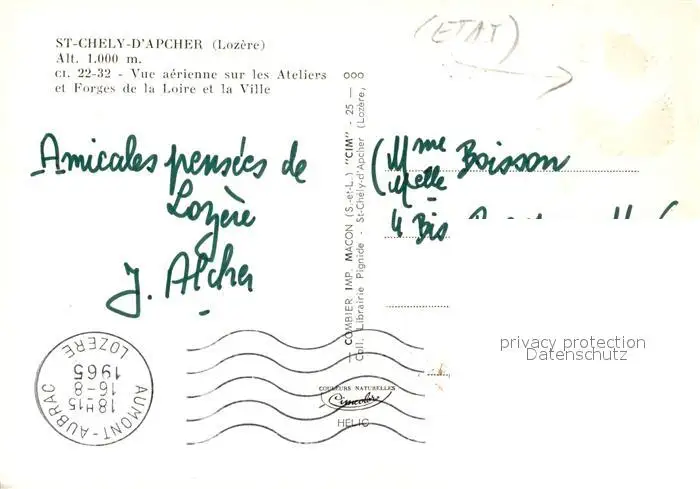 ST-CHELY-D'APCHER (Lozère)
Alt. 1.000 m.
CI. 22-32 - Vue aérienne sur les Ateliers
et Forges de la Loire et la Ville
(ETAT)
Amicales pensées de
Lozère
J. Alcher
Mme Boisson
Melle
4 Bis
COMBIER IMP. MACON (S.-et-L.) "CIM" - 25 -
Coll. Librairie Pignide - St-Chély-d'Apcher (Lozère)
AUMONT-AUBRAC
18H15
16-8
1965
LOZERE
COULEURS NATURELLES
Cimcolor
HELIO
privacy protection
Datenschutz